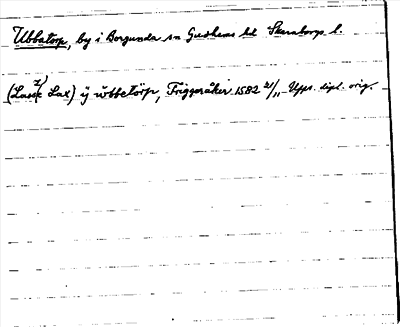 Ubbatorp, by i Borgunda sn Gudhems hd Skaraborgs l.
(Lasse Lax) ÿ wbbetörp, Friggeråker 1582 21/11 Upps. dipl. orig.